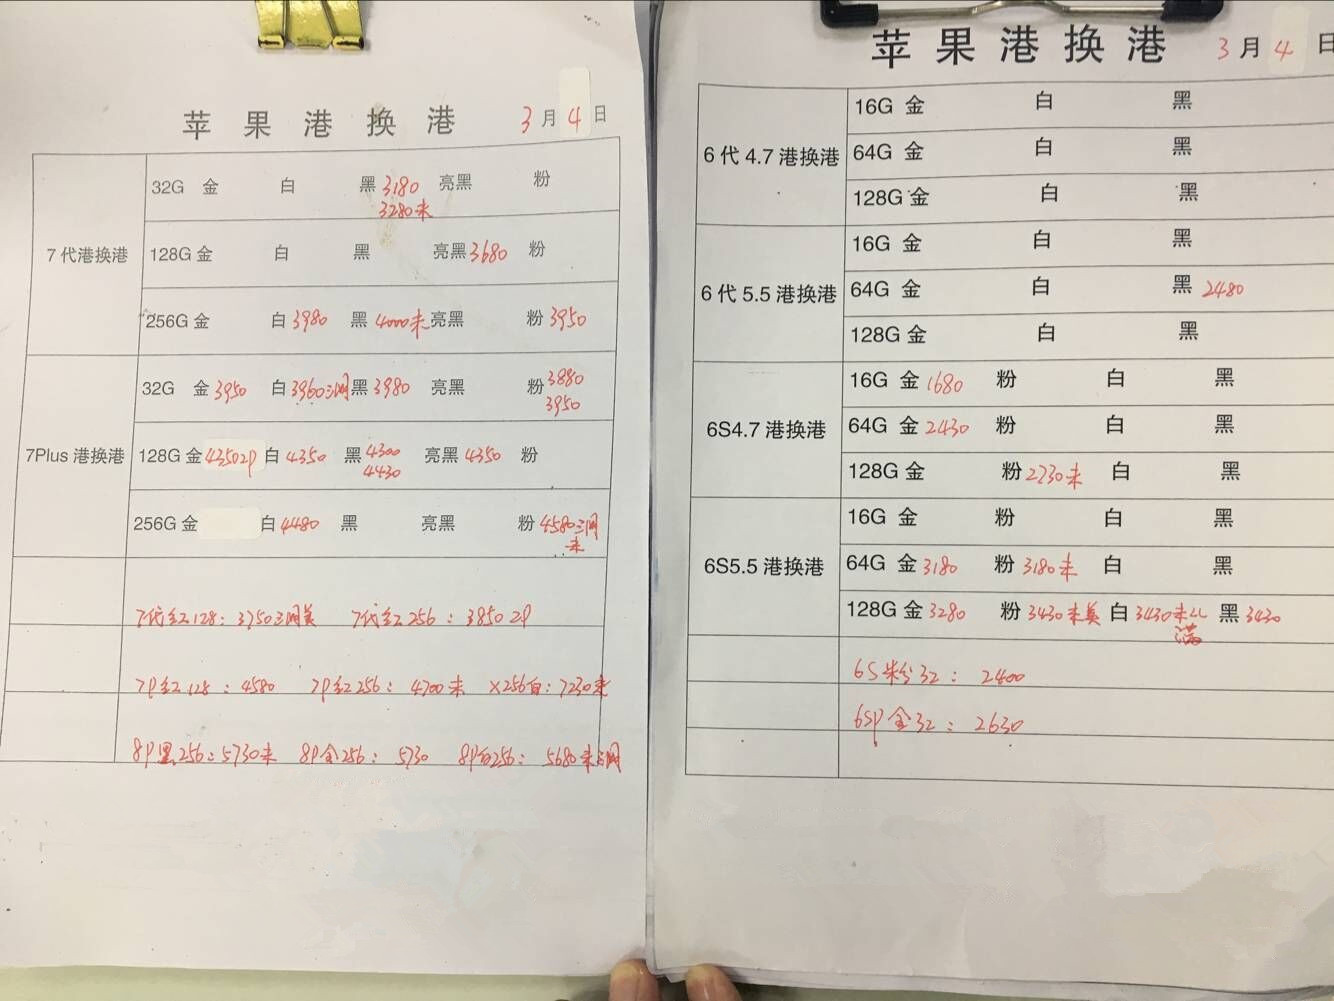 苹果港换港 3月4日
7代港换港
32G 金 白 黑 3180 亮黑 粉
3280未
128G 金 白 黑 亮黑 3680 粉
256G 金 白 3980 黑 4000未 亮黑 粉 3950
7Plus 港换港
32G 金 3950 白 3960三网 黑 3980 亮黑 粉 3880
3950
128G 金 43502P 白 4350 黑 4300 亮黑 4350 粉
4430
256G 金 白 4480 黑 亮黑 粉 4580三网
未
7代红128：3750三网美 7代红256：3850 2P
7P红128：4580 7P红256：4700未 X256白：7230未
8P黑256：5730未 8P金256：5730 8P白256：5680未三网
苹果港换港 3月4日
6代4.7港换港
16G 金 白 黑
64G 金 白 黑
128G 金 白 黑
6代5.5港换港
16G 金 白 黑
64G 金 白 黑 2480
128G 金 白 黑
6S4.7港换港
16G 金 1680 粉 白 黑
64G 金 2430 粉 白 黑
128G 金 粉 2730未 白 黑
6S5.5港换港
16G 金 粉 白 黑
64G 金 3180 粉 3180未 白 黑
128G 金 3280 粉 3430未美 白 3430未 黑 3430
满
6S粉32：2400
6SP金32：2630